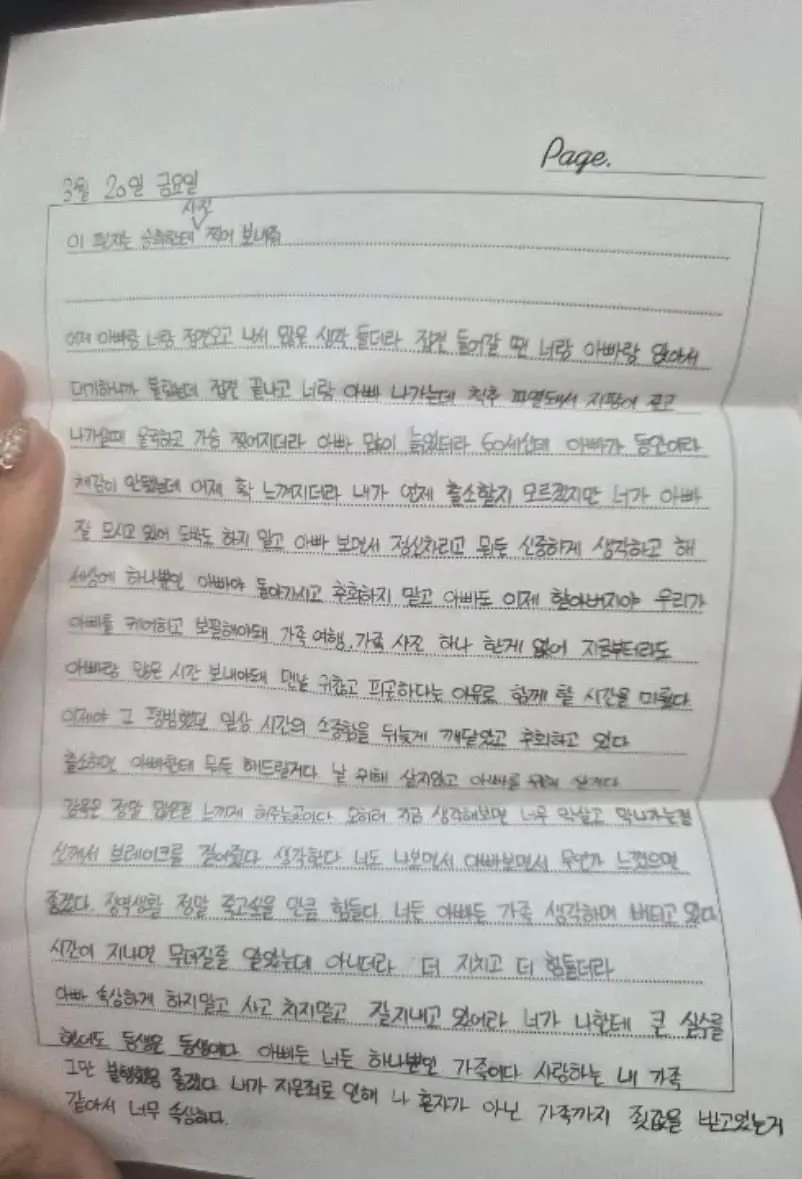 Page.
3월 20일 금요일
사진
이 편지는 승화한테 찍어 보내줘
어제 아빠랑 너랑 접견오고 나서 많은 생각 들더라 접견 들어갈 땐 너랑 아빠랑 앉아서
대기하니까 몰랐는데 접견 끝나고 너랑 아빠 나가는데 척추 파열돼서 지팡이 짚고
나가실때 울컥하고 가슴 찢어지더라 아빠 많이 늙었더라 60세신데 아빠가 동안이라
체감이 안됐는데 어제 확 느껴지더라 내가 언제 출소할지 모르겠지만 너가 아빠
잘 모시고 있어 도박도 하지 말고 아빠 보면서 정신차리고 뭐든 신중하게 생각하고 해
세상에 하나뿐인 아빠야 돌아가시고 후회하지 말고 아빠도 이제 할아버지야 우리가
아빠를 케어하고 보필해야돼 가족 여행, 가족 사진 하나 한게 없어 지금부터라도
아빠랑 많은 시간 보내야돼 맨날 귀찮고 피곤하다는 이유로 함께 할 시간을 미뤘다
이제야 그 평범했던 일상 시간의 소중함을 뒤늦게 깨달았고 후회하고 있다
출소하면 아빠한테 뭐든 해드릴거다 날 위해 살지않고 아빠를 위해 산다
감옥은 정말 많은걸 느끼게 해주는곳이다 오히려 지금 생각해보면 너무 막살고 막나가는걸
신께서 브레이크를 걸어줬다 생각한다 너도 나보면서 아빠보면서 무언가 느꼈으면
좋겠다. 징역생활 정말 죽고싶을 만큼 힘들다 너든 아빠든 가족 생각하며 버티고 있다
시간이 지나면 무뎌질줄 알았는데 아니더라 더 지치고 더 힘들더라
아빠 속상하게 하지말고 사고 치지말고 잘지내고 있어라 너가 나한테 큰 실수를
했어도 동생은 동생이다 아빠든 너든 하나뿐인 가족이다 사랑하는 내 가족
그만 불행했음 좋겠다 내가 지은죄로 인해 나 혼자가 아닌 가족까지 죗값을 받고있는거
같아서 너무 속상하다.